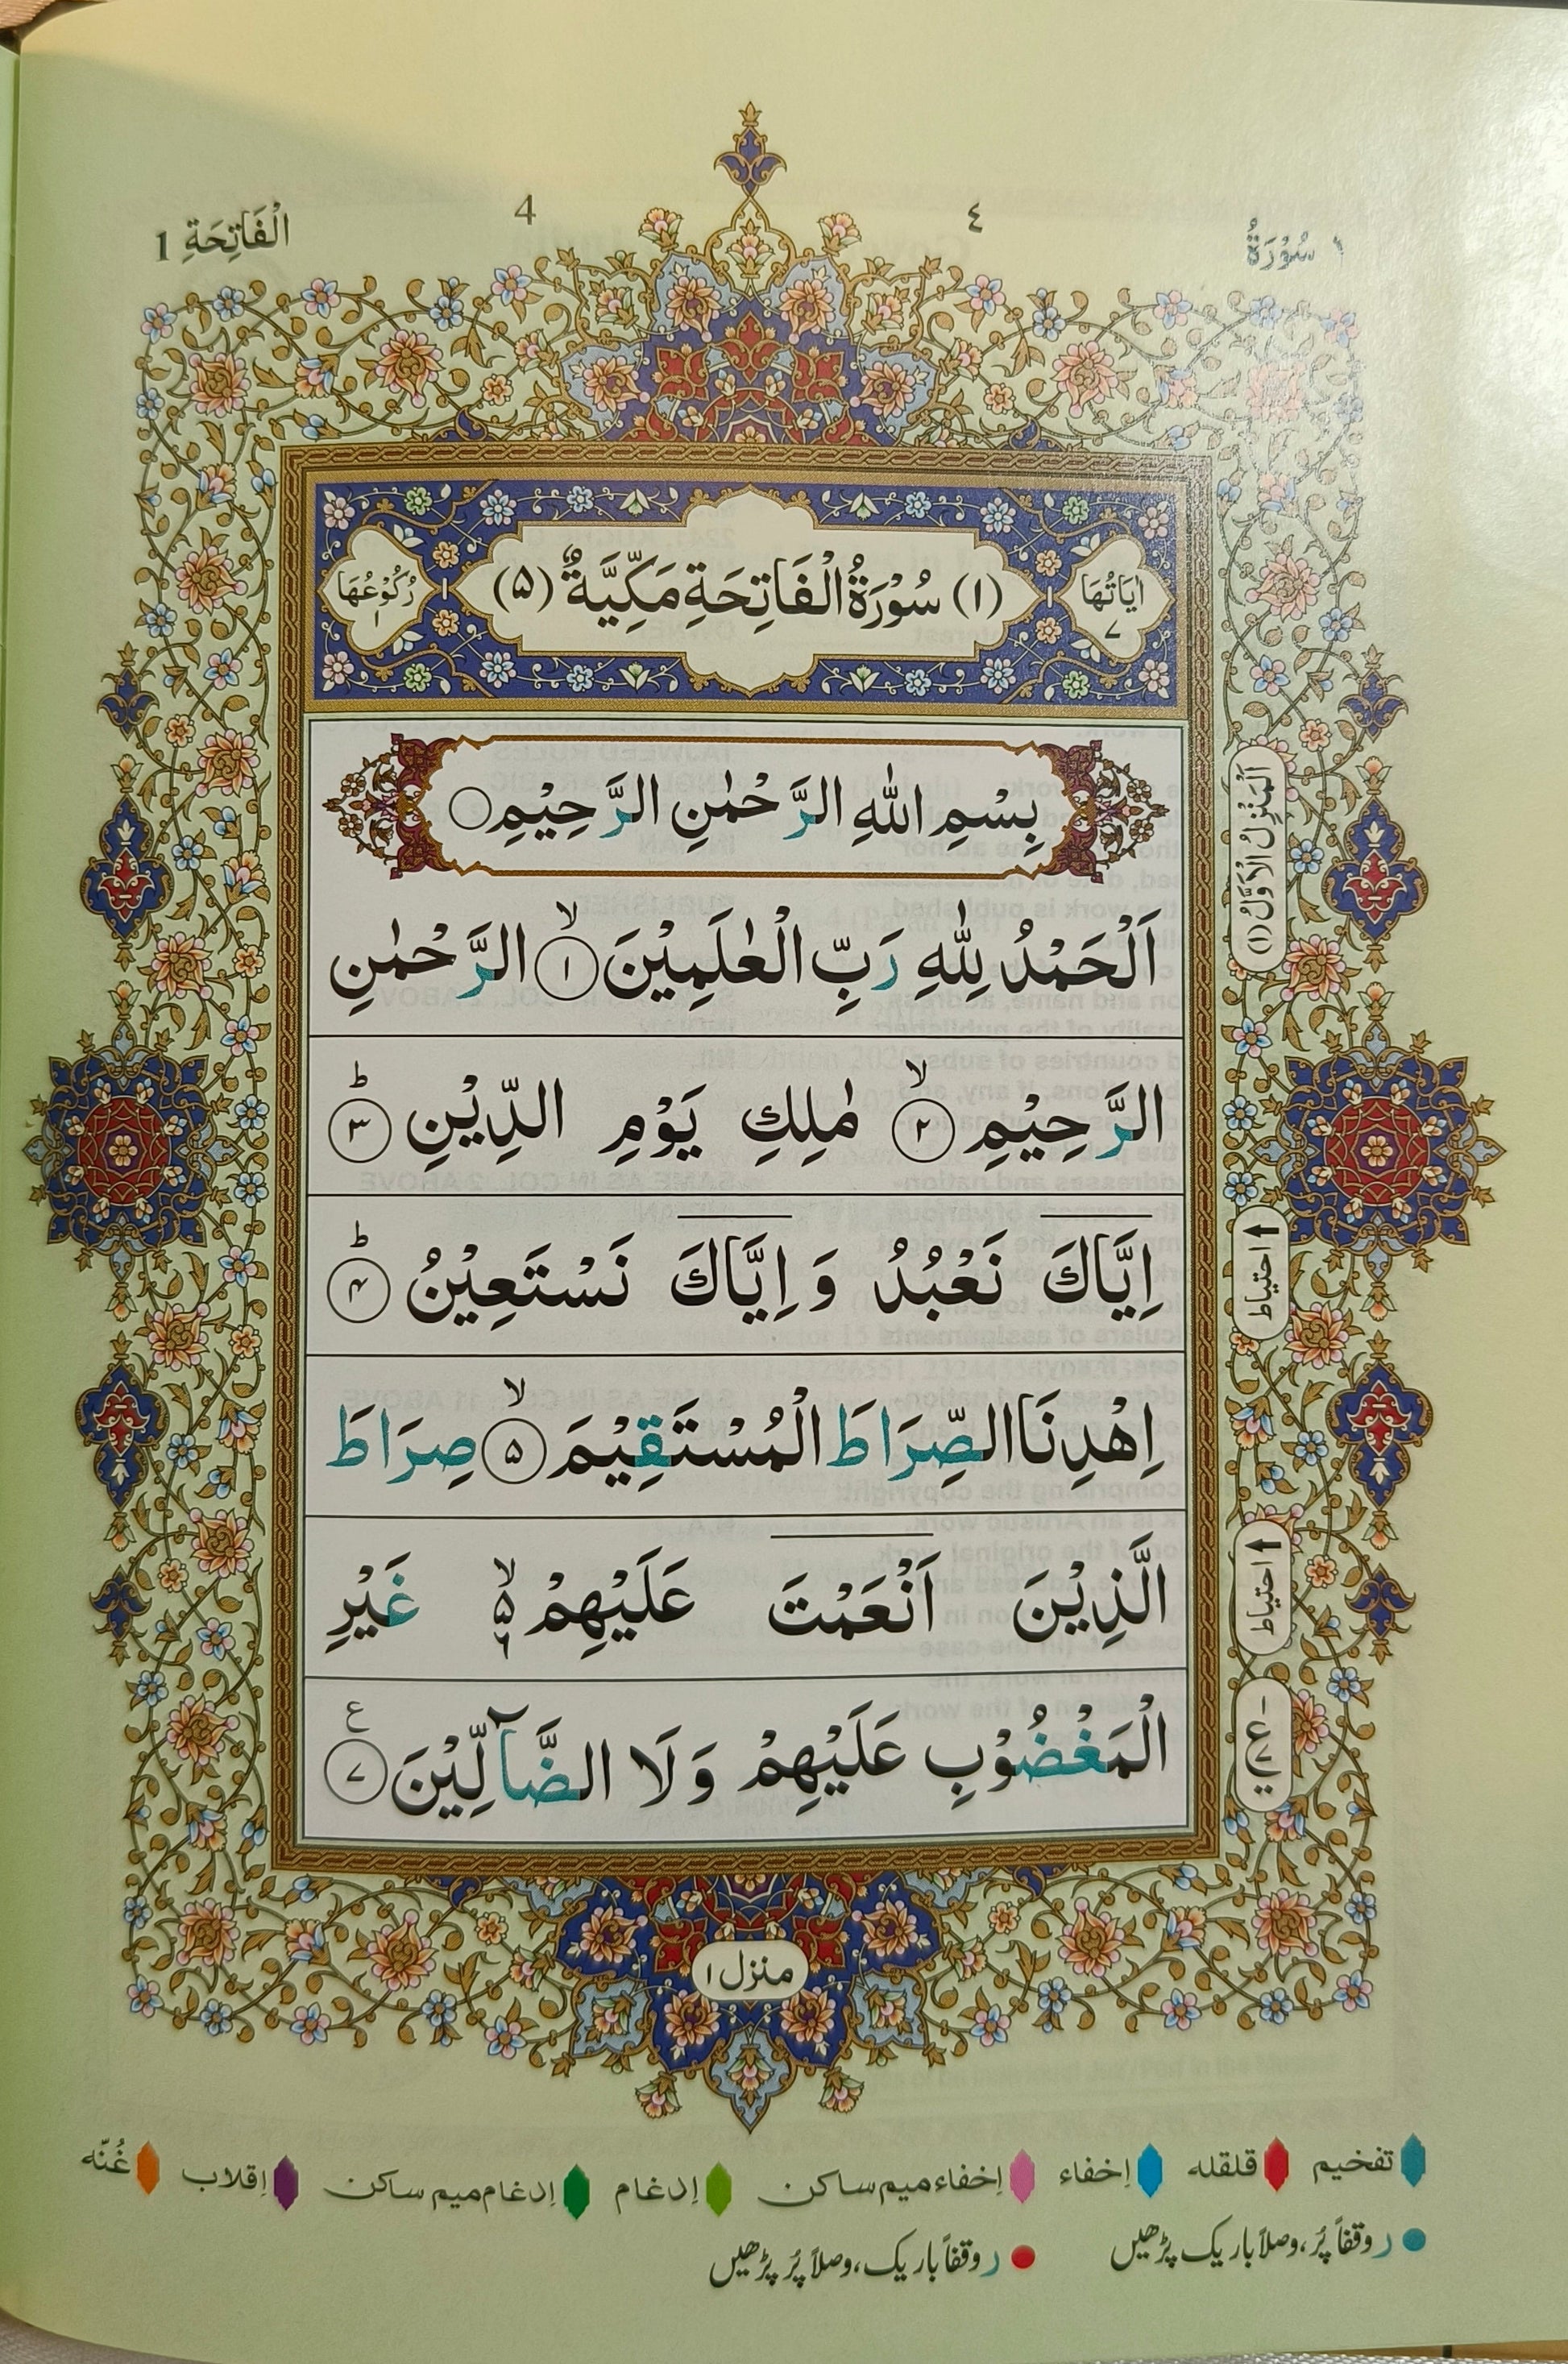 ١ سُوْرَةُ ٤ 4 الْفَاتِحَةِ 1
اٰيَاتُهَا ٧ (١) سُوْرَةُ الْفَاتِحَةِ مَكِّيَّةٌ (۵) رُكُوْعُهَا ١
بِسْمِ اللّٰهِ الرَّحْمٰنِ الرَّحِيْمِ○
اَلْحَمْدُ لِلّٰهِ رَبِّ الْعٰلَمِيْنَ ۙ﴿١﴾ الرَّحْمٰنِ
الرَّحِيْمِ ۙ﴿٢﴾ مٰلِكِ يَوْمِ الدِّيْنِ ؕ﴿٣﴾
اِيَّاكَ نَعْبُدُ وَ اِيَّاكَ نَسْتَعِيْنُ ؕ﴿۴﴾
اِهْدِنَا الصِّرَاطَ الْمُسْتَقِيْمَ ۙ﴿۵﴾ صِرَاطَ
الَّذِيْنَ اَنْعَمْتَ عَلَيْهِمْ ۙ۵ ٦ غَيْرِ
الْمَغْضُوْبِ عَلَيْهِمْ وَلَا الضَّآلِّيْنَ ﴿٧﴾ ع
اَلْمَنْزِلُ الْاَوَّلُ (١)
احتیاط
احتیاط
١ ع ٧
منزل ١
تفخیم قلقله اِخفاء اِخفاء میم ساکن اِدغام اِدغام میم ساکن اِقلاب غُنّه
ر وقفاً پُر، وصلاً باریک پڑھیں ر وقفاً باریک، وصلاً پُر پڑھیں